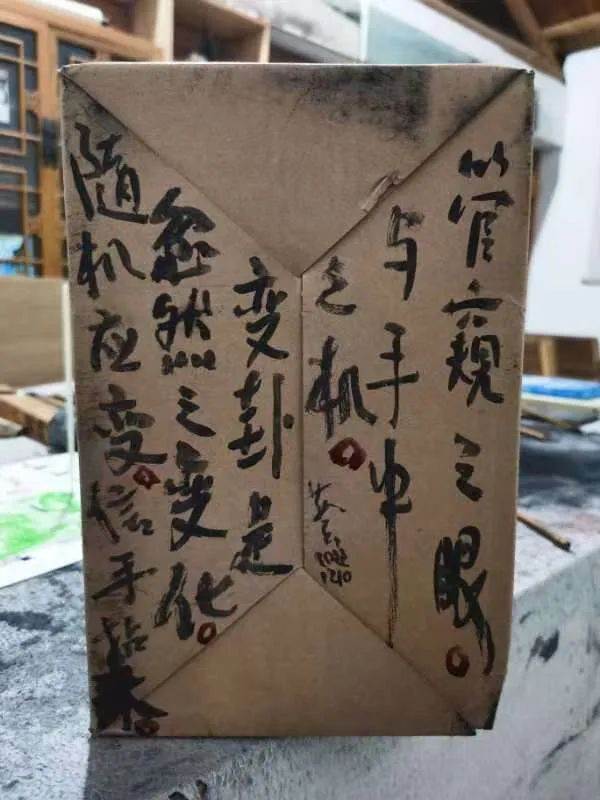 管窥之眼
与手中
之机
2022
1210
变卦是
忽然之变化
随机应变信手拈来